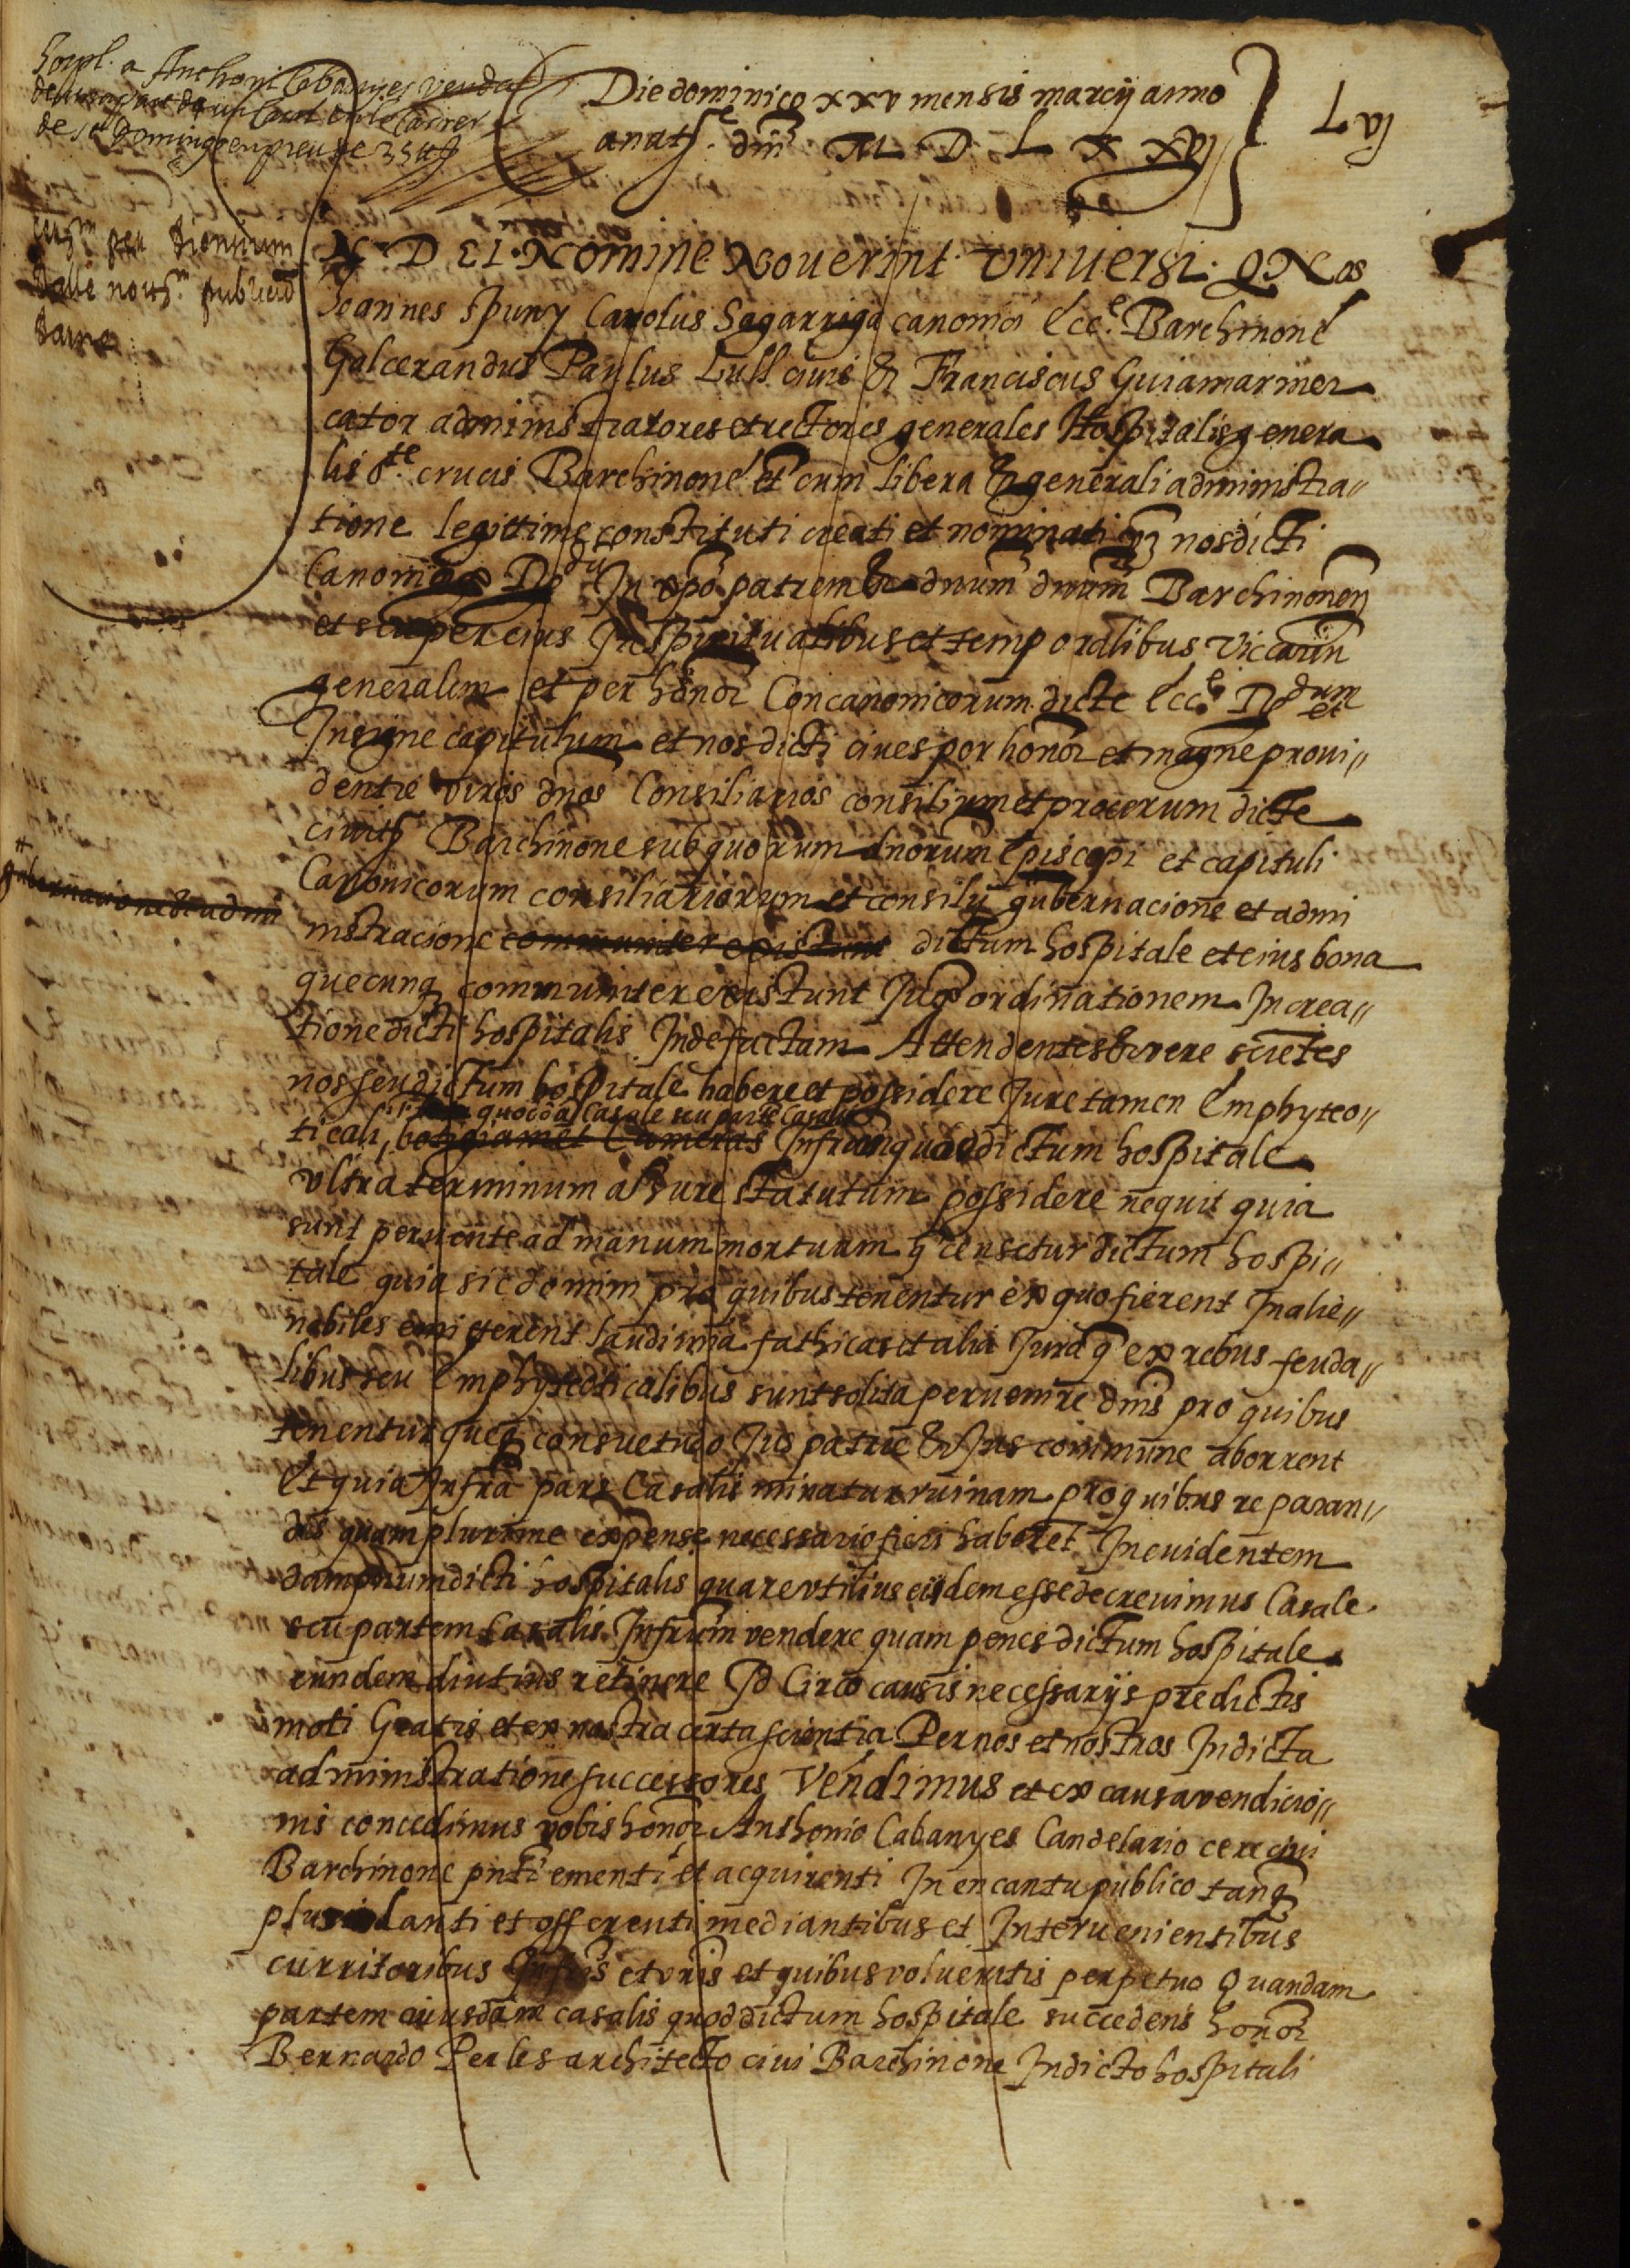 hospl. a Anthoni Cabanyes venda
de una part de un casal en lo carrer
de sct Domingo en preu de 35 ll s
Die dominico xxv mensis marcij anno
a natʃe. dnī M D L X X vj
Lvj
IN DEI Nomine Noverint universi. Q. Nos
Joannes Spuny Carolus Sagarriga canonici Ecce. Barchinone
Galcerandus Paulus Lull civis & Franciscus Guiamar mer
cator administratores et rectores generales Hospitalis genera
lis ste. crucis Barchinone et cum libera & generali administra〃
tione legittime constituti creati et nominati nos dicti
Canonici per Rdu In xpō patrem & dnum dnum Barchinonen
et seu per eius In spiritualibus et temporalibus Vicariū
generalem et per honor Concanonicorum dicte Ecce. Rdum et
Insigne capitulum et nos dicti cives per honor et magne provi〃
dentie viros dnos Consiliarios consilium et procerum dicte
civitʃ Barchinone sub quorum dnorum Episcopi et capituli
Canonicorum consiliariorum et consilij gubernacione et admi
nistracione communiter existunt dictum hospitale et eius bona
quecunq communiter existunt Jux ordinationem In crea〃
tione dicti hospitalis Inde factam Attendentes & vere scietes
nos seu dictum hospitale habere et possidere Jure tamen Emphyteo〃
quoddā Casale seu parte Casalis
ticali, botigiam et Cameras Infrum quod dictum hospitale
ultra terminum a Jure statutum possidere nequit quia
sunt pervente ad manum mortuam q censetur dictum hospi〃
tale quia sic domini pro quibus tenentur ex quo fierent Inalie〃
nabiles amitterent laudimia fathicas et alia Jura q ex rebus feuda〃
libus seu Emphyteoticalibus sunt solita pervenire dnis pro quibus
tenentur queq consuetudo Jus patrie & Jus commune aborrent
Et quia Infra pars Casalis minatur ruinam pro quibus reparan〃
dis quam plurime expense necessario fieri haberet In evidentem
dampnum dicti hospitalis quare utilius eisdem esse decrevimus Casale
seu partem Casalis Infrum vendere quam penes dictum hospitale
eundem diutius retinere Id Circo causis necessarijs predictis
moti Gratis et ex nostra certa scientia Per nos et nostros In dicta
administratione successores Vendimus et ex causa vendicio〃
nis concedimus vobis honor Anthonio Cabanyes Candelario cere civi
Barchinone pnti ementi et acquirenti In encantu publico tanq
plus danti et offerenti mediantibus et Intervenientibus
curritoribus Infris et vris et quibus volueritis perpetuo Quandam
partem cuiusdam casalis quod dictum hospitale succedens honor
Bernardo Perles architecto civi Barchinone In dicto hospitali